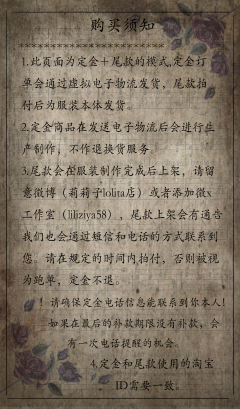 购买须知
**********************
1.此页面为定金＋尾款的模式,定金订
单会通过虚拟电子物流发货，尾款拍
付后为服装本体发货。
2.定金商品在发送电子物流后会进行生
产制作，不作退换货服务。
3.尾款会在服装制作完成后上架，请留
意微博（莉莉子lolita店）或者添加微x
工作室（liliziya58），尾款上架会有通告
我们也会通过短信和电话的方式联系到
您。请在规定的时间内拍付，否则被视
为跑单，定金不退。
！请确保定金电话信息能联系到你本人！
如果在最后的补款期限没有补款，会
有一次电话提醒的机会。
4.定金和尾款使用的淘宝
ID需要一致。